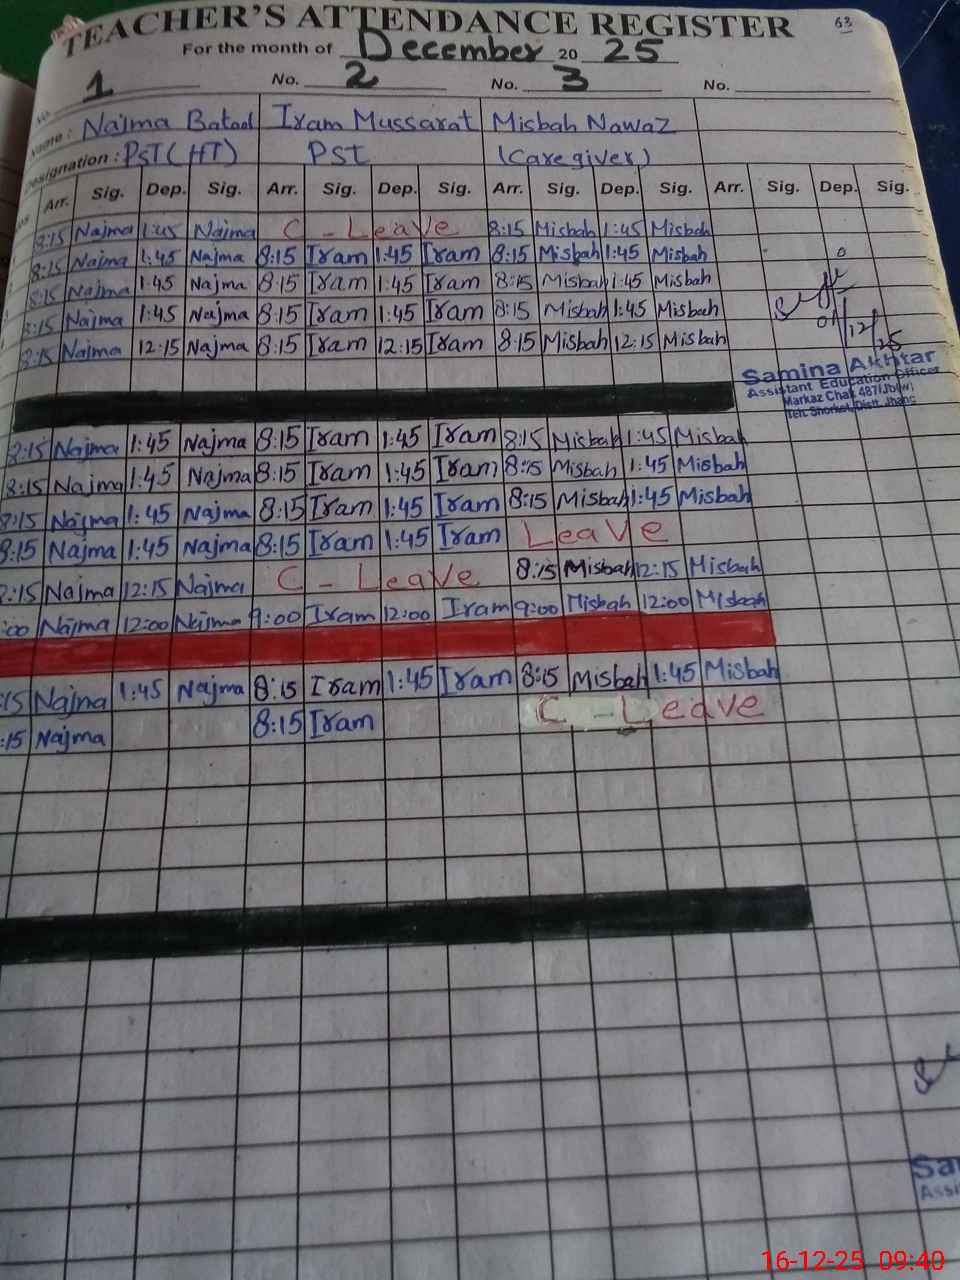 TEACHER'S ATTENDANCE REGISTER 63
For the month of December 20 25
No. 1 No. 2 No. 3 No.
Name: Najma Batool Iram Mussarat Misbah Nawaz
Designation: PST (HT) PST (Care giver)
Arr. Sig. Dep. Sig. Arr. Sig. Dep. Sig. Arr. Sig. Dep. Sig. Arr. Sig. Dep. Sig.
8:15 Najma 1:45 Najma C - Leave 8:15 Misbah 1:45 Misbah
8:15 Najma 1:45 Najma 8:15 Iram 1:45 Iram 8:15 Misbah 1:45 Misbah
8:15 Najma 1:45 Najma 8:15 Iram 1:45 Iram 8:15 Misbah 1:45 Misbah
8:15 Najma 1:45 Najma 8:15 Iram 1:45 Iram 8:15 Misbah 1:45 Misbah
8:15 Najma 12:15 Najma 8:15 Iram 12:15 Iram 8:15 Misbah 12:15 Misbah
01/12/25
Samina Akhtar
Assistant Education Officer
Markaz Chak 487(Jb)(W)
Teh. Shorkot, Distt. Jhang
8:15 Najma 1:45 Najma 8:15 Iram 1:45 Iram 8:15 Misbah 1:45 Misbah
8:15 Najma 1:45 Najma 8:15 Iram 1:45 Iram 8:15 Misbah 1:45 Misbah
8:15 Najma 1:45 Najma 8:15 Iram 1:45 Iram 8:15 Misbah 1:45 Misbah
8:15 Najma 1:45 Najma 8:15 Iram 1:45 Iram Leave
8:15 Najma 12:15 Najma C - Leave 8:15 Misbah 12:15 Misbah
:00 Najma 12:00 Najma 9:00 Iram 12:00 Iram 9:00 Misbah 12:00 Misbah
:15 Najma 1:45 Najma 8:15 Iram 1:45 Iram 8:15 Misbah 1:45 Misbah
:15 Najma 8:15 Iram C - Leave
Sa
Assi
16-12-25 09:40